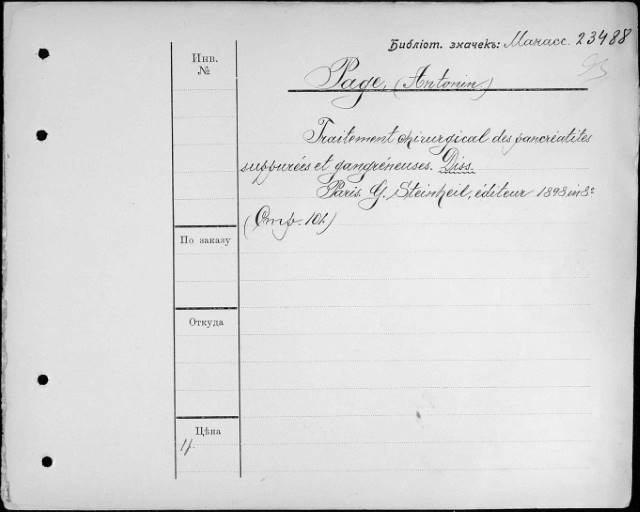 Библіот. значекъ: Манасс. 23488
93
Инв. №
Page, (Antonin)
Traitement chirurgical des pancréatites
suppurées et gangréneuses. Diss.
Paris. G. Steinheil, éditeur 1898 in 8º
(Стр. 102)
По заказу
Откуда
Цѣна